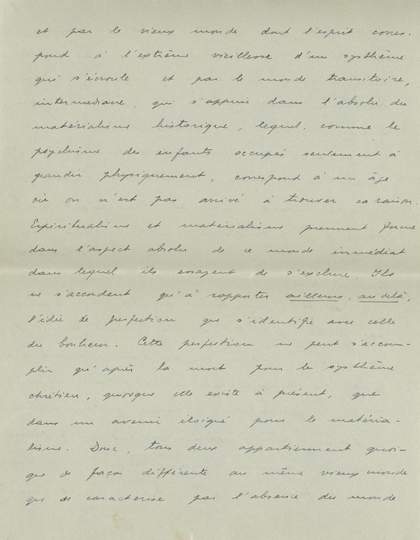 et par le vieux monde dont l'esprit corres-
pond à l'extrême vieillesse d'un système
qui s'écroule et par le monde transitoire,
intermédiaire, qui s'appuie dans l'absolu du
matérialisme historique, lequel, comme le
psychisme des enfants occupés seulement à
grandir physiquement, correspond à un âge
où on n'est pas arrivé à trouver sa raison.
Espiritualisme et matérialisme prennent forme
dans l'aspect absolu de ce monde immédiat
dans lequel ils essayent de s'exclure. Ils
ne s'accordent qu'à rapporter ailleurs, au delà,
l'idée de perfection qui s'identifie avec celle
du bonheur. Cette perfection ne peut s'accom-
plir qu'après la mort pour le système
chrétien, quoique elle existe à présent, que
dans un avenir éloigné pour le matéria-
lisme. Donc, tous deux appartiennent quoi-
que de façon différente au même vieux monde
qui se caractérise par l'absence du monde